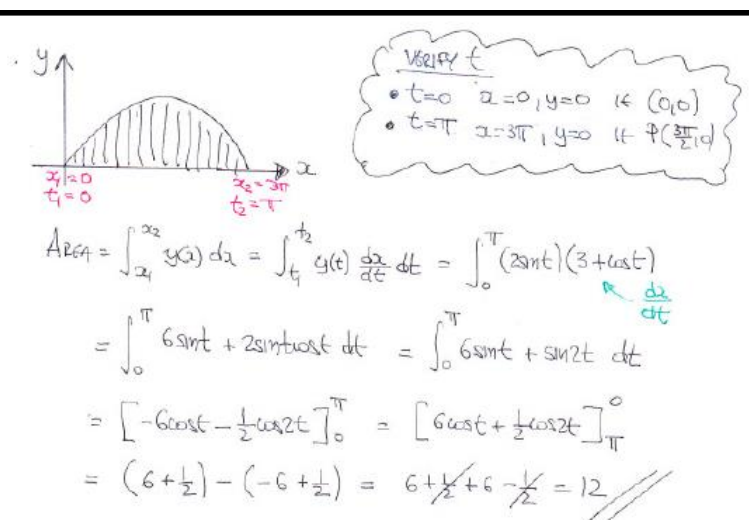 y
VERIFY t
• t=0 x=0, y=0 IE (0,0)
• t=π x=3π, y=0 IE P(3π/2,0)
x
x₁=0 x₂=3π
t₁=0 t₂=π
AREA = ∫_{x₁}^{x₂} y(x) dx = ∫_{t₁}^{t₂} y(t) dx/dt dt = ∫_0^π (2sint)(3+cost)
dx/dt
= ∫_0^π 6sint + 2sintcost dt = ∫_0^π 6sint + sin2t dt
= [-6cost - 1/2 cos2t]_0^π = [6cost + 1/2 cos2t]_π^0
= (6 + 1/2) - (-6 + 1/2) = 6 + 1/2 + 6 - 1/2 = 12